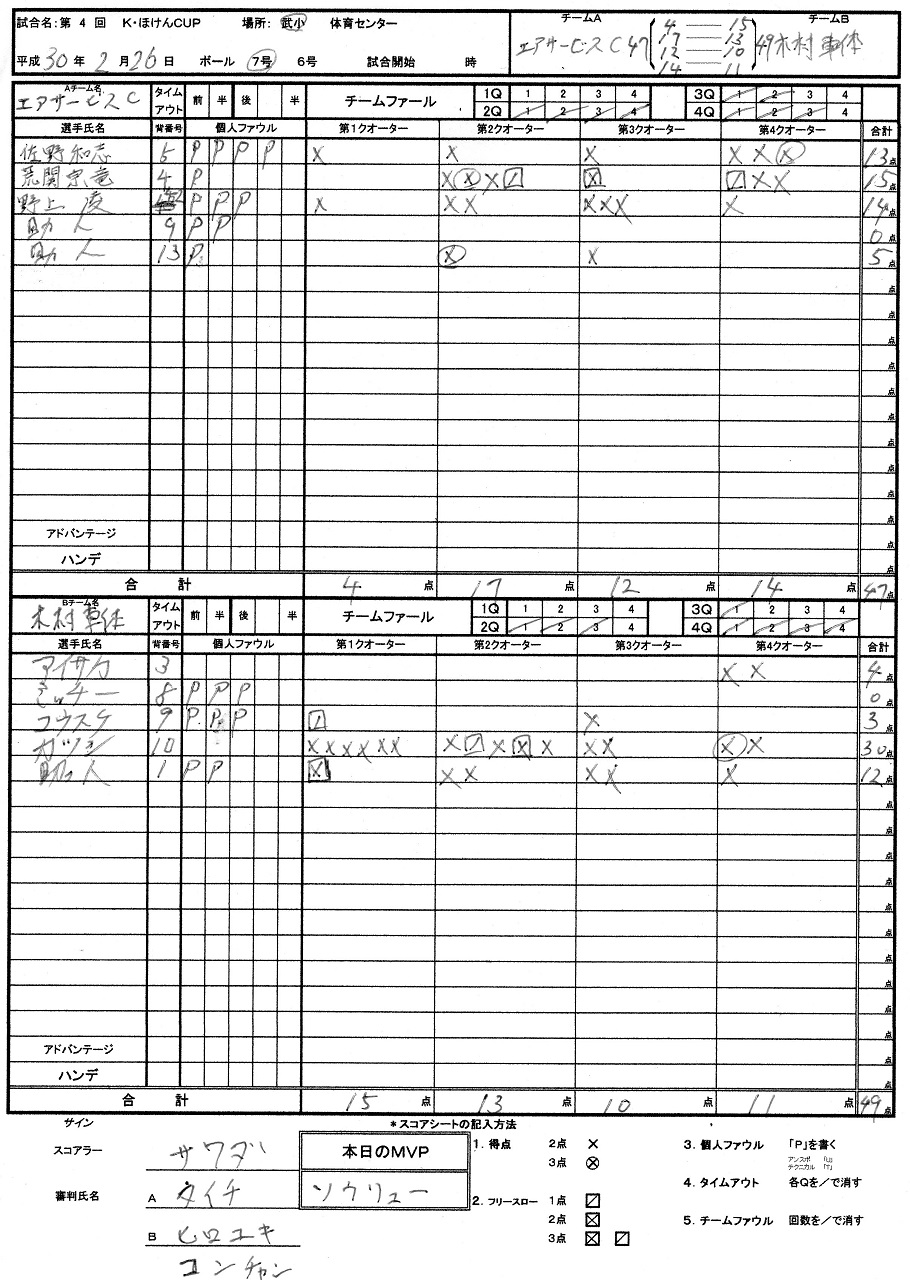 試合名:第 4 回 K・ほけんCUP 場所: 武小 体育センター
平成 30 年 2 月 26 日 ボール 7号 6号 試合開始 時
チームA チームB
エアサービスC 47 49 木村車体
4 — 15
17 — 13
12 — 10
14 — 11
Aチーム名 エアサービスC タイムアウト 前 半 後 半 チームファール 1Q 1 2 3 4 3Q 1 2 3 4
2Q 1 2 3 4 4Q 1 2 3 4
選手氏名 背番号 個人ファウル 第1クオーター 第2クオーター 第3クオーター 第4クオーター 合計
佐野和志 5 P P P P X X X X X X 13点
荒関宗竜 4 P X X X X X X 15点
野上 陵 P P P X X X X X X X 14点
助人 9 P P 0点
助人 13 P X X 5点
アドバンテージ 点
ハンデ 点
合 計 4 点 17 点 12 点 14 点 47点
Bチーム名 木村車体 タイムアウト 前 半 後 半 チームファール 1Q 1 2 3 4 3Q 1 2 3 4
2Q 1 2 3 4 4Q 1 2 3 4
選手氏名 背番号 個人ファウル 第1クオーター 第2クオーター 第3クオーター 第4クオーター 合計
アイサカ 3 X X 4点
ミッチー 8 P P P 0点
コウスケ 9 P P P X 3点
10 X X X X X X X X X X X X X X 30点
助っ人 1 P P X X X X X X 12点
アドバンテージ 点
ハンデ 点
合 計 15 点 13 点 10 点 11 点 49点
サイン
スコアラー サワダ
審判氏名 A タイチ
B ヒロユキ
コンチャン
本日のMVP
ソウリュー
*スコアシートの記入方法
1. 得点 2点 ×
3点 ⊗
2. フリースロー 1点 ☐
2点 ☒
3点 ☒ ☐
3. 個人ファウル 「P」を書く
アンスポ 「U」
テクニカル 「T」
4. タイムアウト 各Qを/で消す
5. チームファウル 回数を/で消す